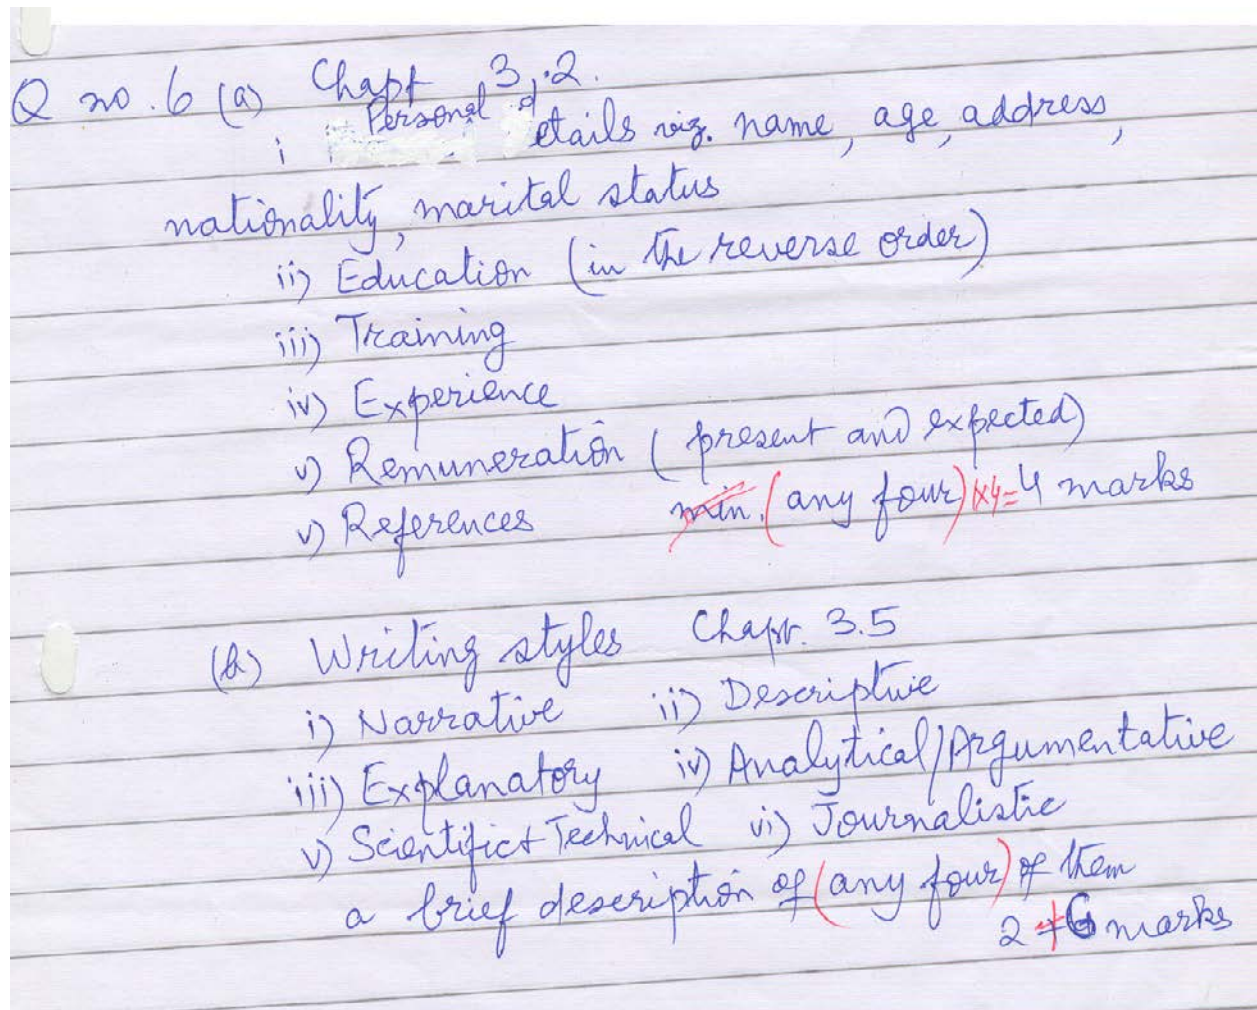 Q no. 6 (a) Chapt 3.2.
i Personal details viz. name, age, address,
nationality, marital status
ii) Education (in the reverse order)
iii) Training
iv) Experience
v) Remuneration (present and expected)
v) References min. (any four) 1x4=4 marks
(b) Writing styles Chapt. 3.5
i) Narrative ii) Descriptive
iii) Explanatory iv) Analytical/Argumentative
v) Scientific+Technical vi) Journalistic
a brief description of (any four) of them
2+6 marks